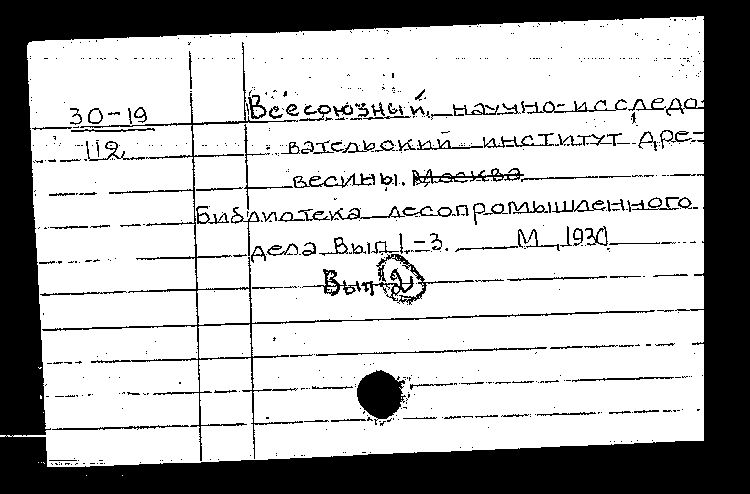 30-19
112
Всесоюзный научно-исследо-
вательский институт дре-
весины. Москва
Библиотека лесопромышленного
дела Вып 1-3. М, 1930
Вып 2